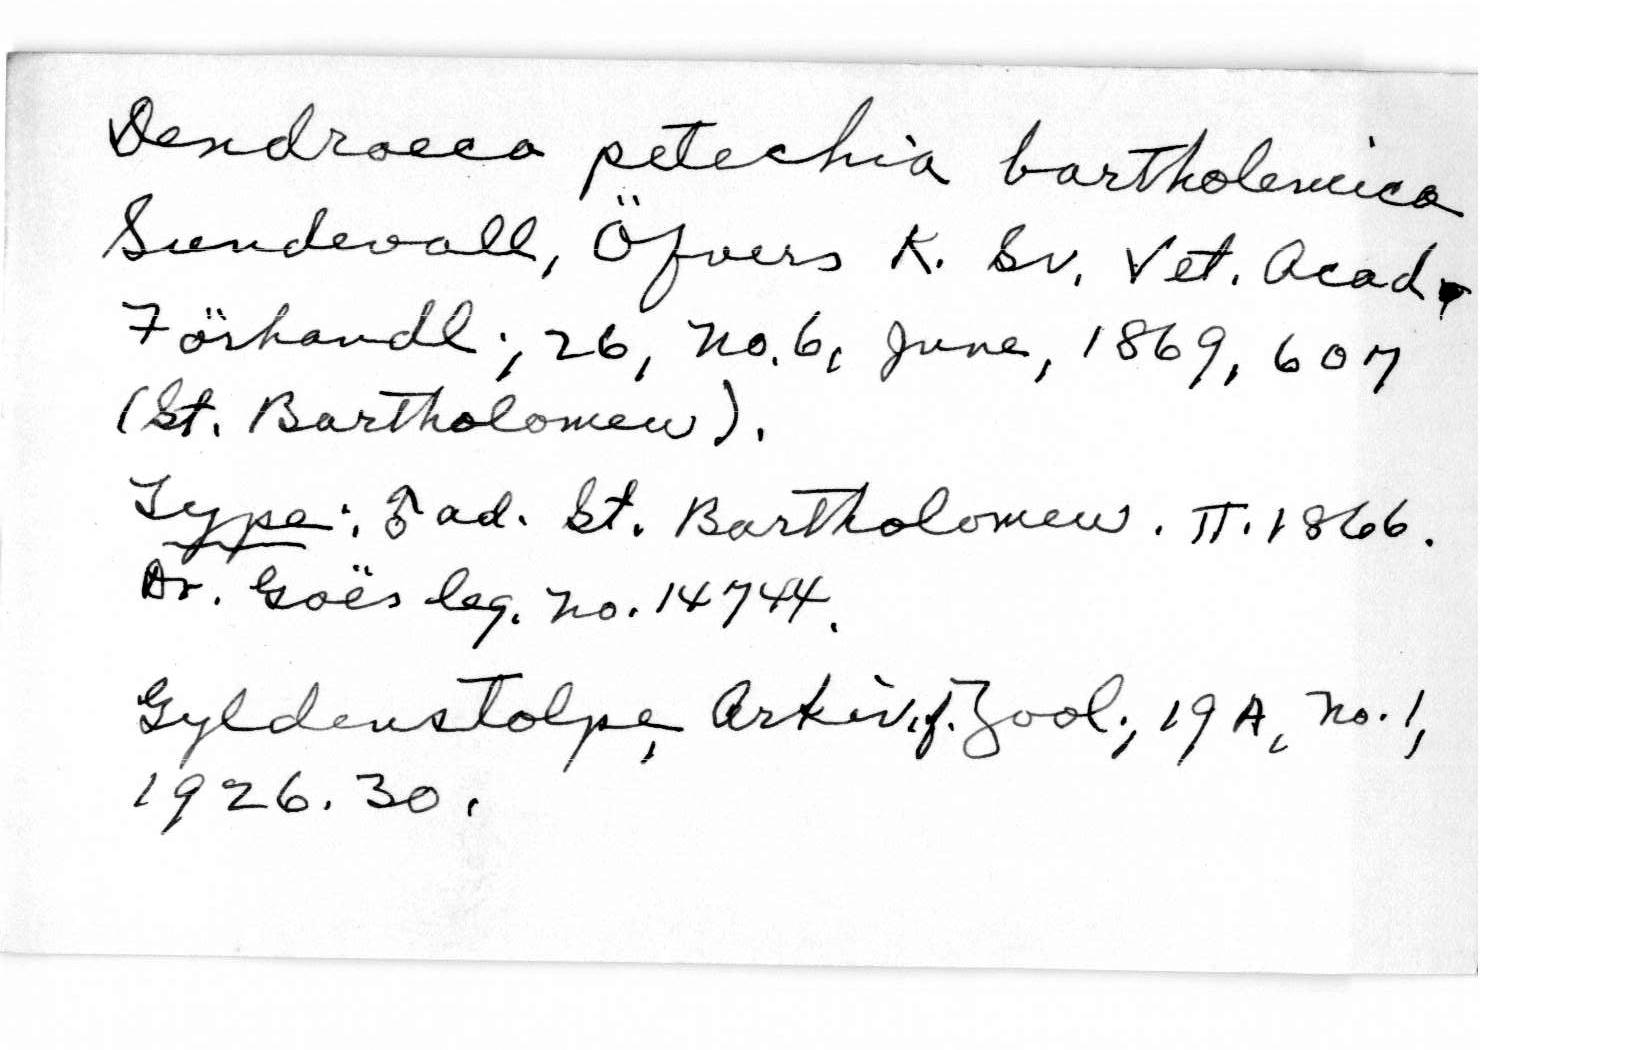 Dendroeca petechia bartholemica
Sundevall, Öfvers K. Sv. Vet. Acad.
Förhandl., 26, no. 6, June, 1869, 607
(St. Bartholomew).
Type: ♂ ad. St. Bartholomew. II. 1866.
Dr. Goës leg. no. 14744.
Gyldenstolpe, Arkiv. f. Zool., 19 A, no. 1,
1926. 30.